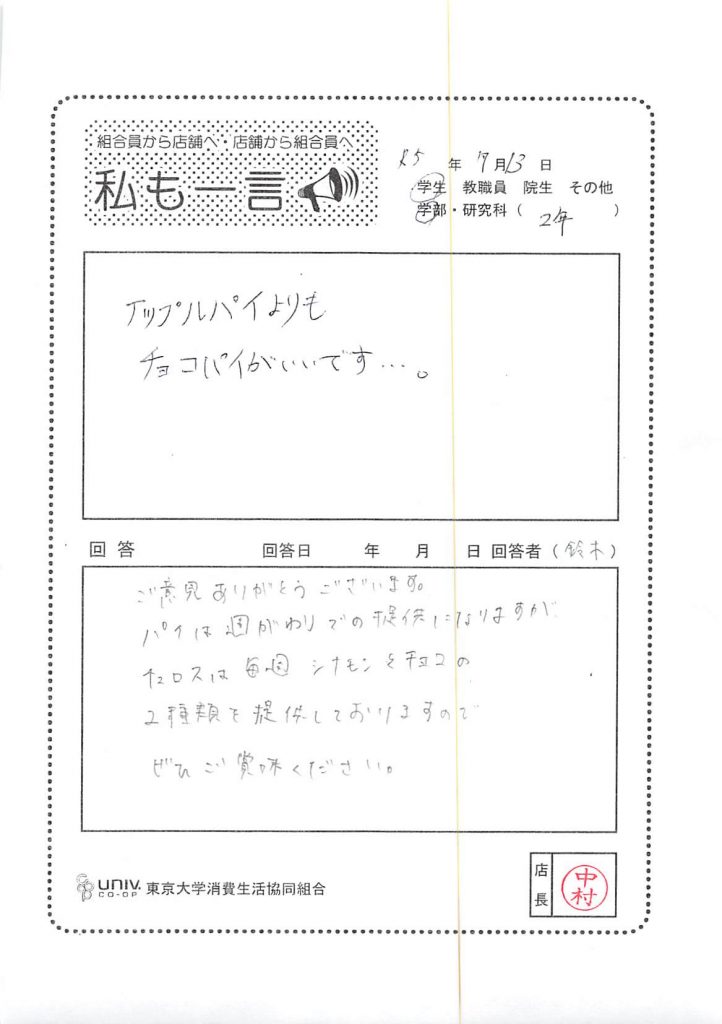 組合員から店舗へ・店舗から組合員へ
私も一言
R5 年 7月13日
学生 教職員 院生 その他
学部・研究科( 2年 )
アップルパイよりも
チョコパイがいいです…。
回答 回答日 年 月 日 回答者(鈴木)
ご意見ありがとうございます。
パイは週がわりでの提供になりますが
チュロスは毎週 シナモンとチョコの
2種類を提供しておりますので
ぜひご賞味ください。
UNIV. CO-OP 東京大学消費生活協同組合
店長 中村